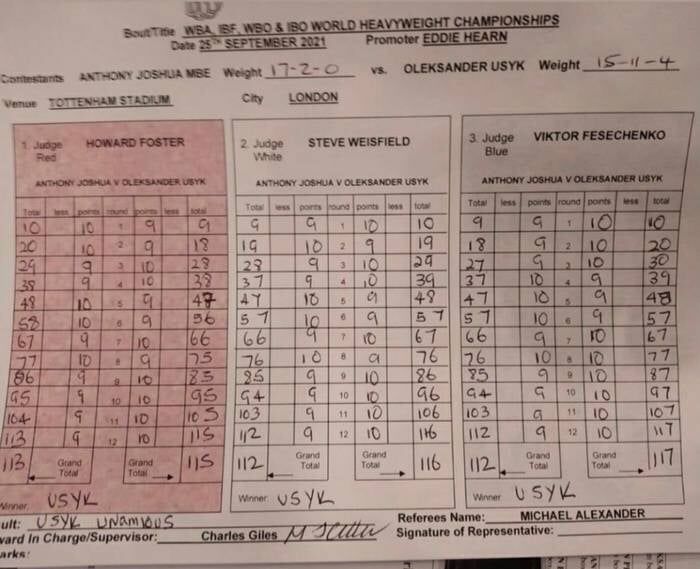 Bout Title WBA, IBF, WBO & IBO WORLD HEAVYWEIGHT CHAMPIONSHIPS
Date 25TH SEPTEMBER 2021 Promoter EDDIE HEARN
Contestants ANTHONY JOSHUA MBE Weight 17-2-0 vs. OLEKSANDER USYK Weight 15-11-4
Venue TOTTENHAM STADIUM City LONDON
1. Judge HOWARD FOSTER
Red
ANTHONY JOSHUA V OLEKSANDER USYK
Total less points round points less total
10 10 1 9 9
20 10 2 9 18
29 9 3 10 28
38 9 4 10 38
48 10 5 9 47
58 10 6 9 56
67 9 7 10 66
77 10 8 9 75
86 9 9 10 85
95 9 10 10 95
104 9 11 10 105
113 9 12 10 115
113 Grand Total Grand Total 115
Winner USYK
2. Judge STEVE WEISFIELD
White
ANTHONY JOSHUA V OLEKSANDER USYK
Total less points round points less total
9 9 1 10 10
19 10 2 9 19
28 9 3 10 29
37 9 4 10 39
47 10 5 9 48
57 10 6 9 57
66 9 7 10 67
76 10 8 9 76
85 9 9 10 86
94 9 10 10 96
103 9 11 10 106
112 9 12 10 116
112 Grand Total Grand Total 116
Winner USYK
3. Judge VIKTOR FESECHENKO
Blue
ANTHONY JOSHUA V OLEKSANDER USYK
Total less points round points less total
9 9 1 10 10
18 9 2 10 20
27 9 3 10 30
37 10 4 9 39
47 10 5 9 48
57 10 6 9 57
66 9 7 10 67
76 10 8 10 77
85 9 9 10 87
94 9 10 10 97
103 9 11 10 107
112 9 12 10 117
112 Grand Total Grand Total 117
Winner USYK
ult: USYK UNAMIOUS Referees Name: MICHAEL ALEXANDER
ward In Charge/Supervisor: Charles Giles Signature of Representative:
arks: